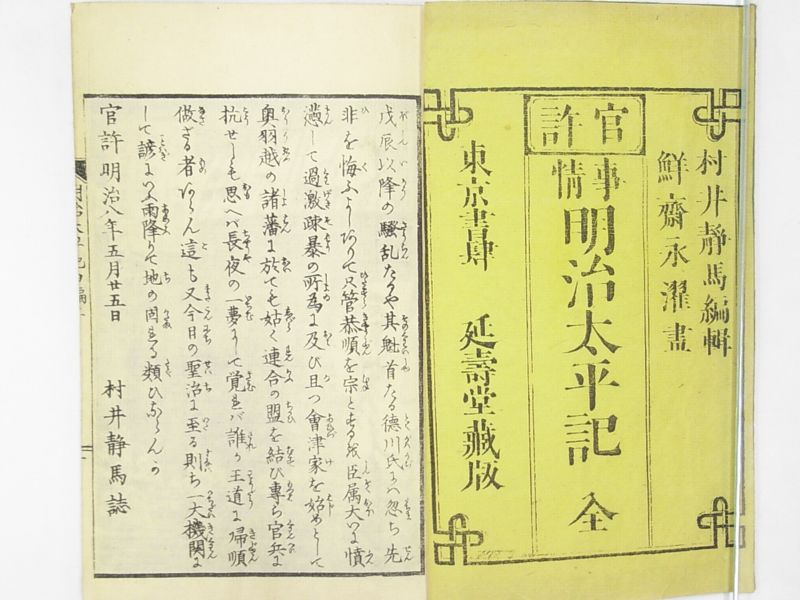 村井靜馬編輯
鮮齋永濯畫
官許
事情 明治太平記 全
東京書肆 延壽堂藏版
戊辰以降の騒乱たるや其魁首たる徳川氏には忽ち先
非を悔ふ
て只管恭順を宗とするも臣属大いに憤
懣して過激疎暴の所為に及び且つ會津家を始めとして
奥羽越の諸藩に於ても姑く連合の盟を結び專ら官兵に
抗せしも思へバ長夜の一夢にて覚れバ誰か王道に帰順
做ざる者
らん這も又今日の聖治に至る則ち一大機関に
して諺にいふ雨降りて地の固まる類ひならんか
官許明治八年五月廿五日 村井静馬誌